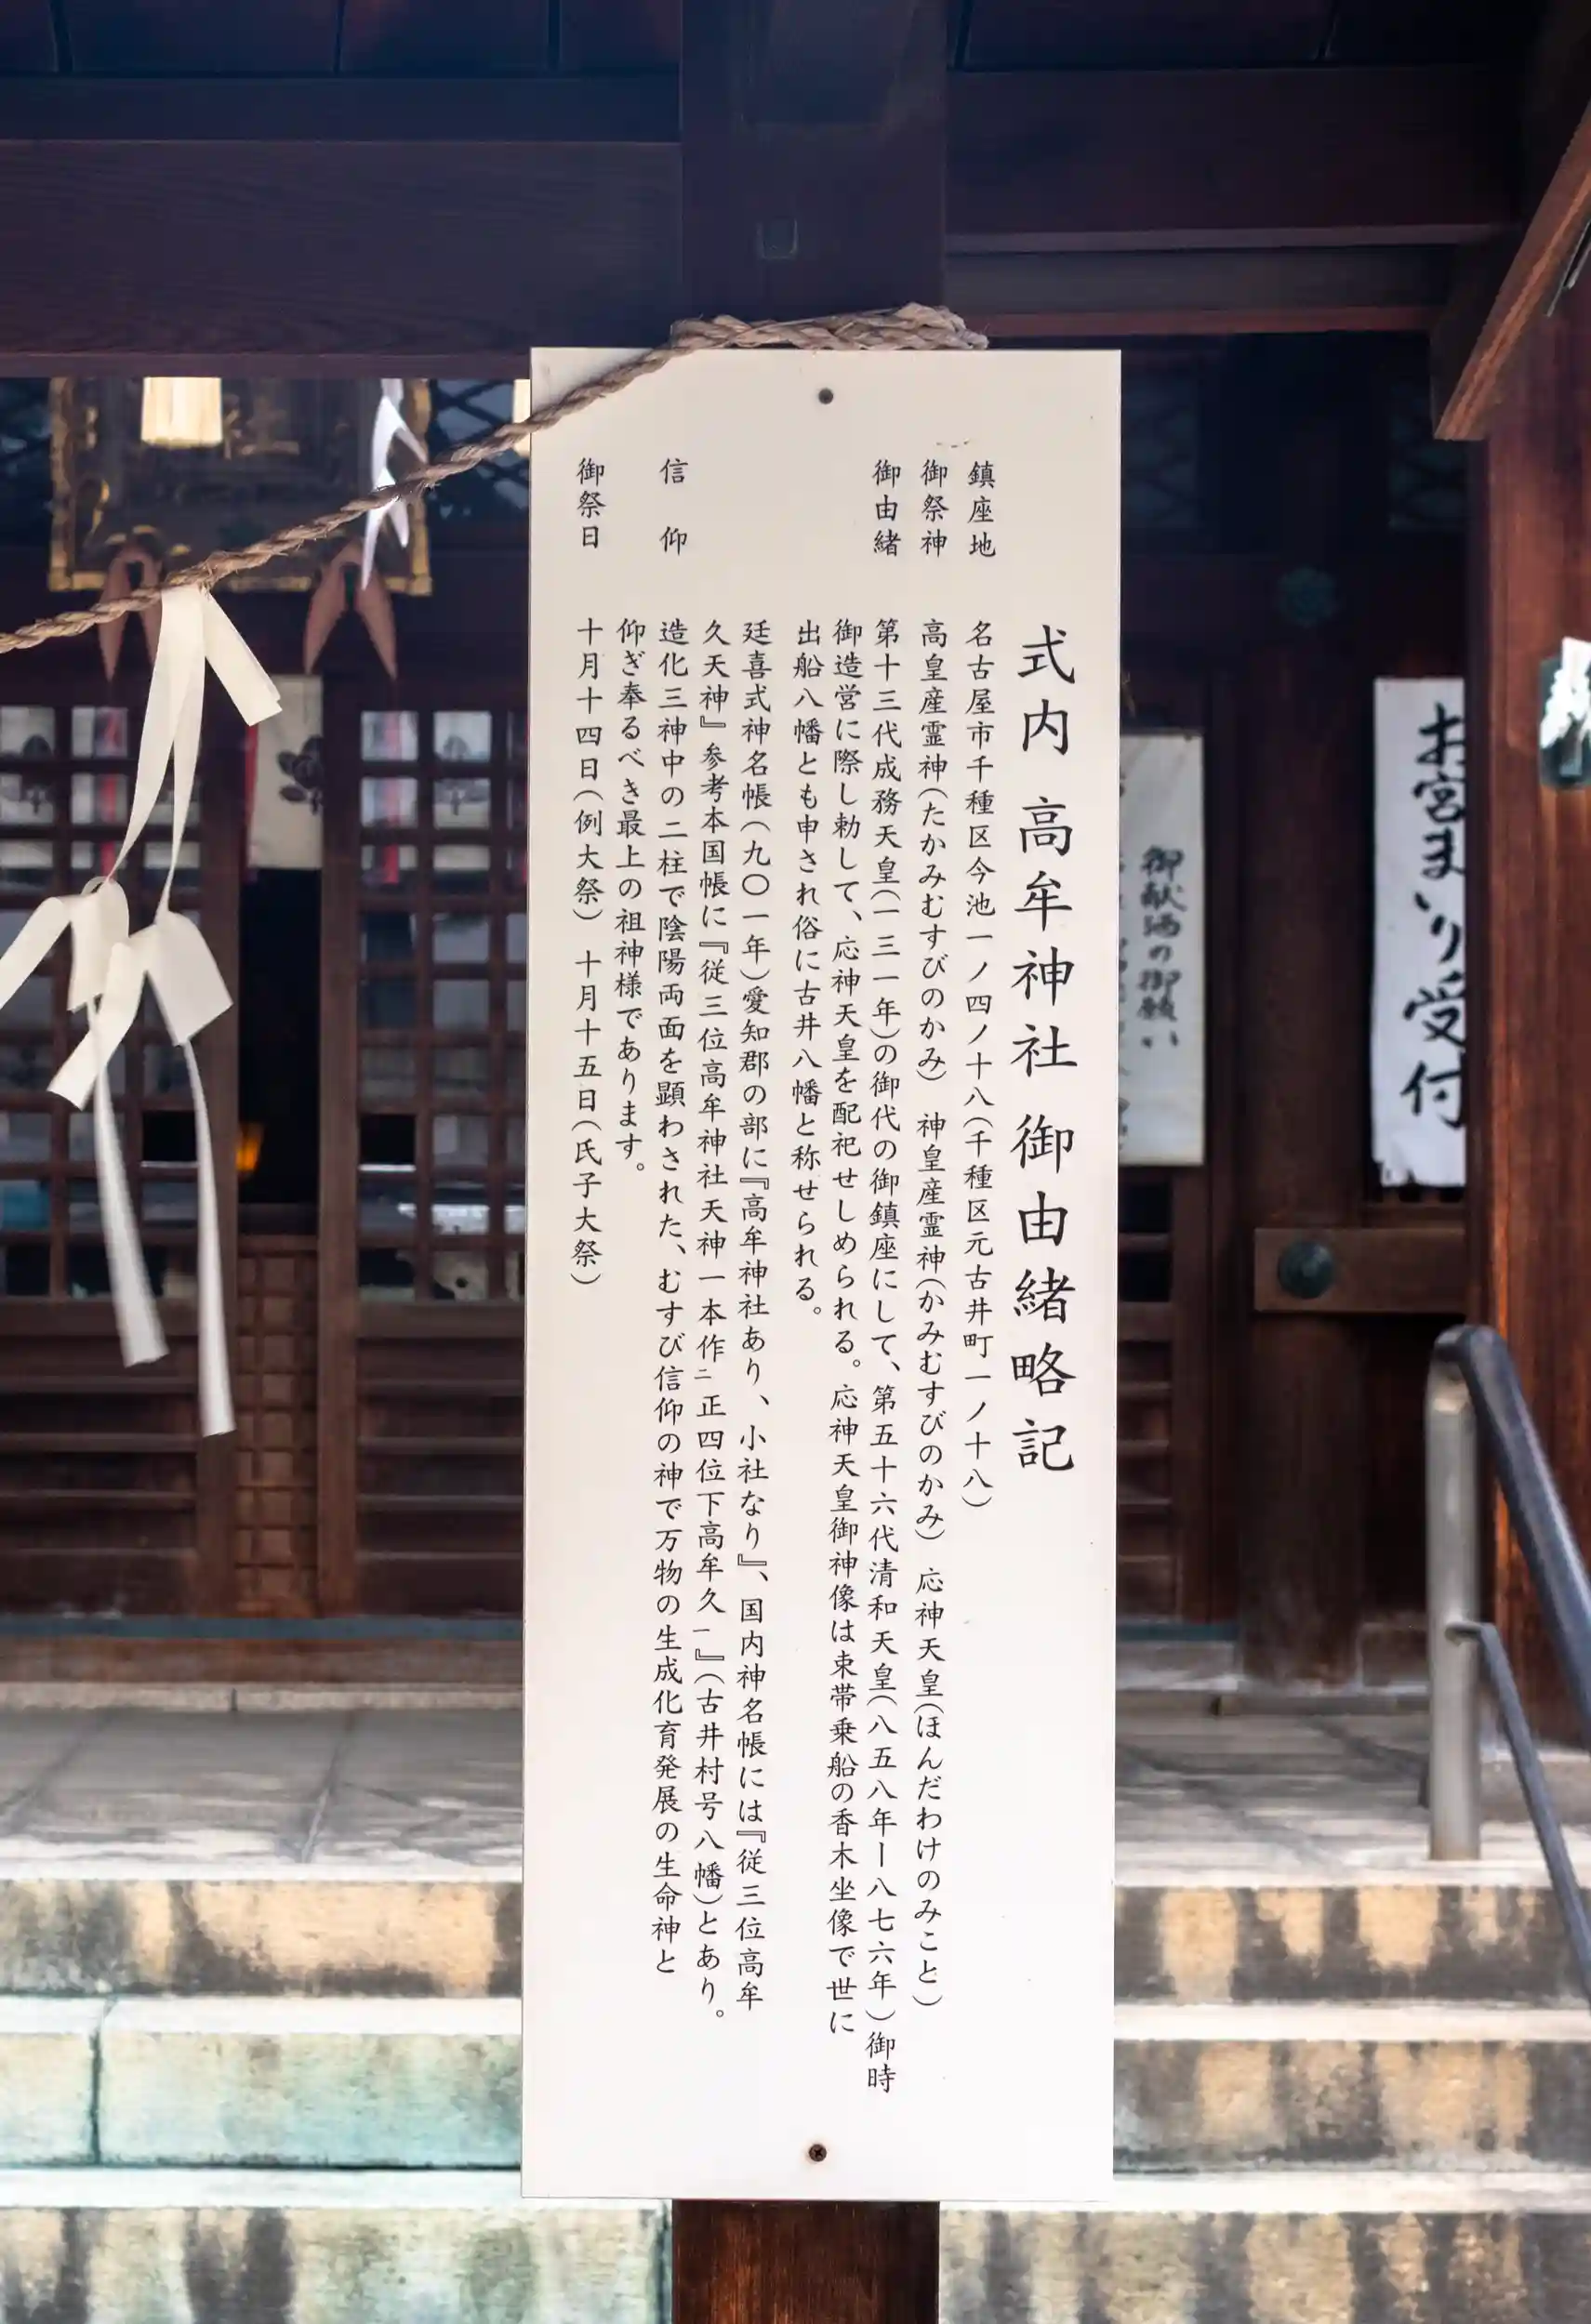 式内 高牟神社 御由緒略記
鎮座地 名古屋市千種区今池一ノ四ノ十八(千種区元古井町一ノ十八)
御祭神 高皇産霊神(たかみむすびのかみ) 神皇産霊神(かみむすびのかみ) 応神天皇(ほんだわけのみこと)
御由緒 第十三代成務天皇(一三一年)の御代の御鎮座にして、第五十六代清和天皇(八五八年ー八七六年)御時
御造営に際し勅して、応神天皇を配祀せしめられる。応神天皇御神像は束帯乗船の香木坐像で世に
出船八幡とも申され俗に古井八幡と称せられる。
廷喜式神名帳(九〇一年)愛知郡の部に『高牟神社あり、小社なり』、国内神名帳には『従三位高牟
久天神』参考本国帳に『従三位高牟神社天神一本作ニ正四位下高牟久一』(古井村号八幡)とあり。
信仰 造化三神中の二柱で陰陽両面を顕わされた、むすび信仰の神で万物の生成化育発展の生命神と
仰ぎ奉るべき最上の祖神様であります。
御祭日 十月十四日(例大祭) 十月十五日(氏子大祭)
お宮まいり受付
御献酒の御願い
社